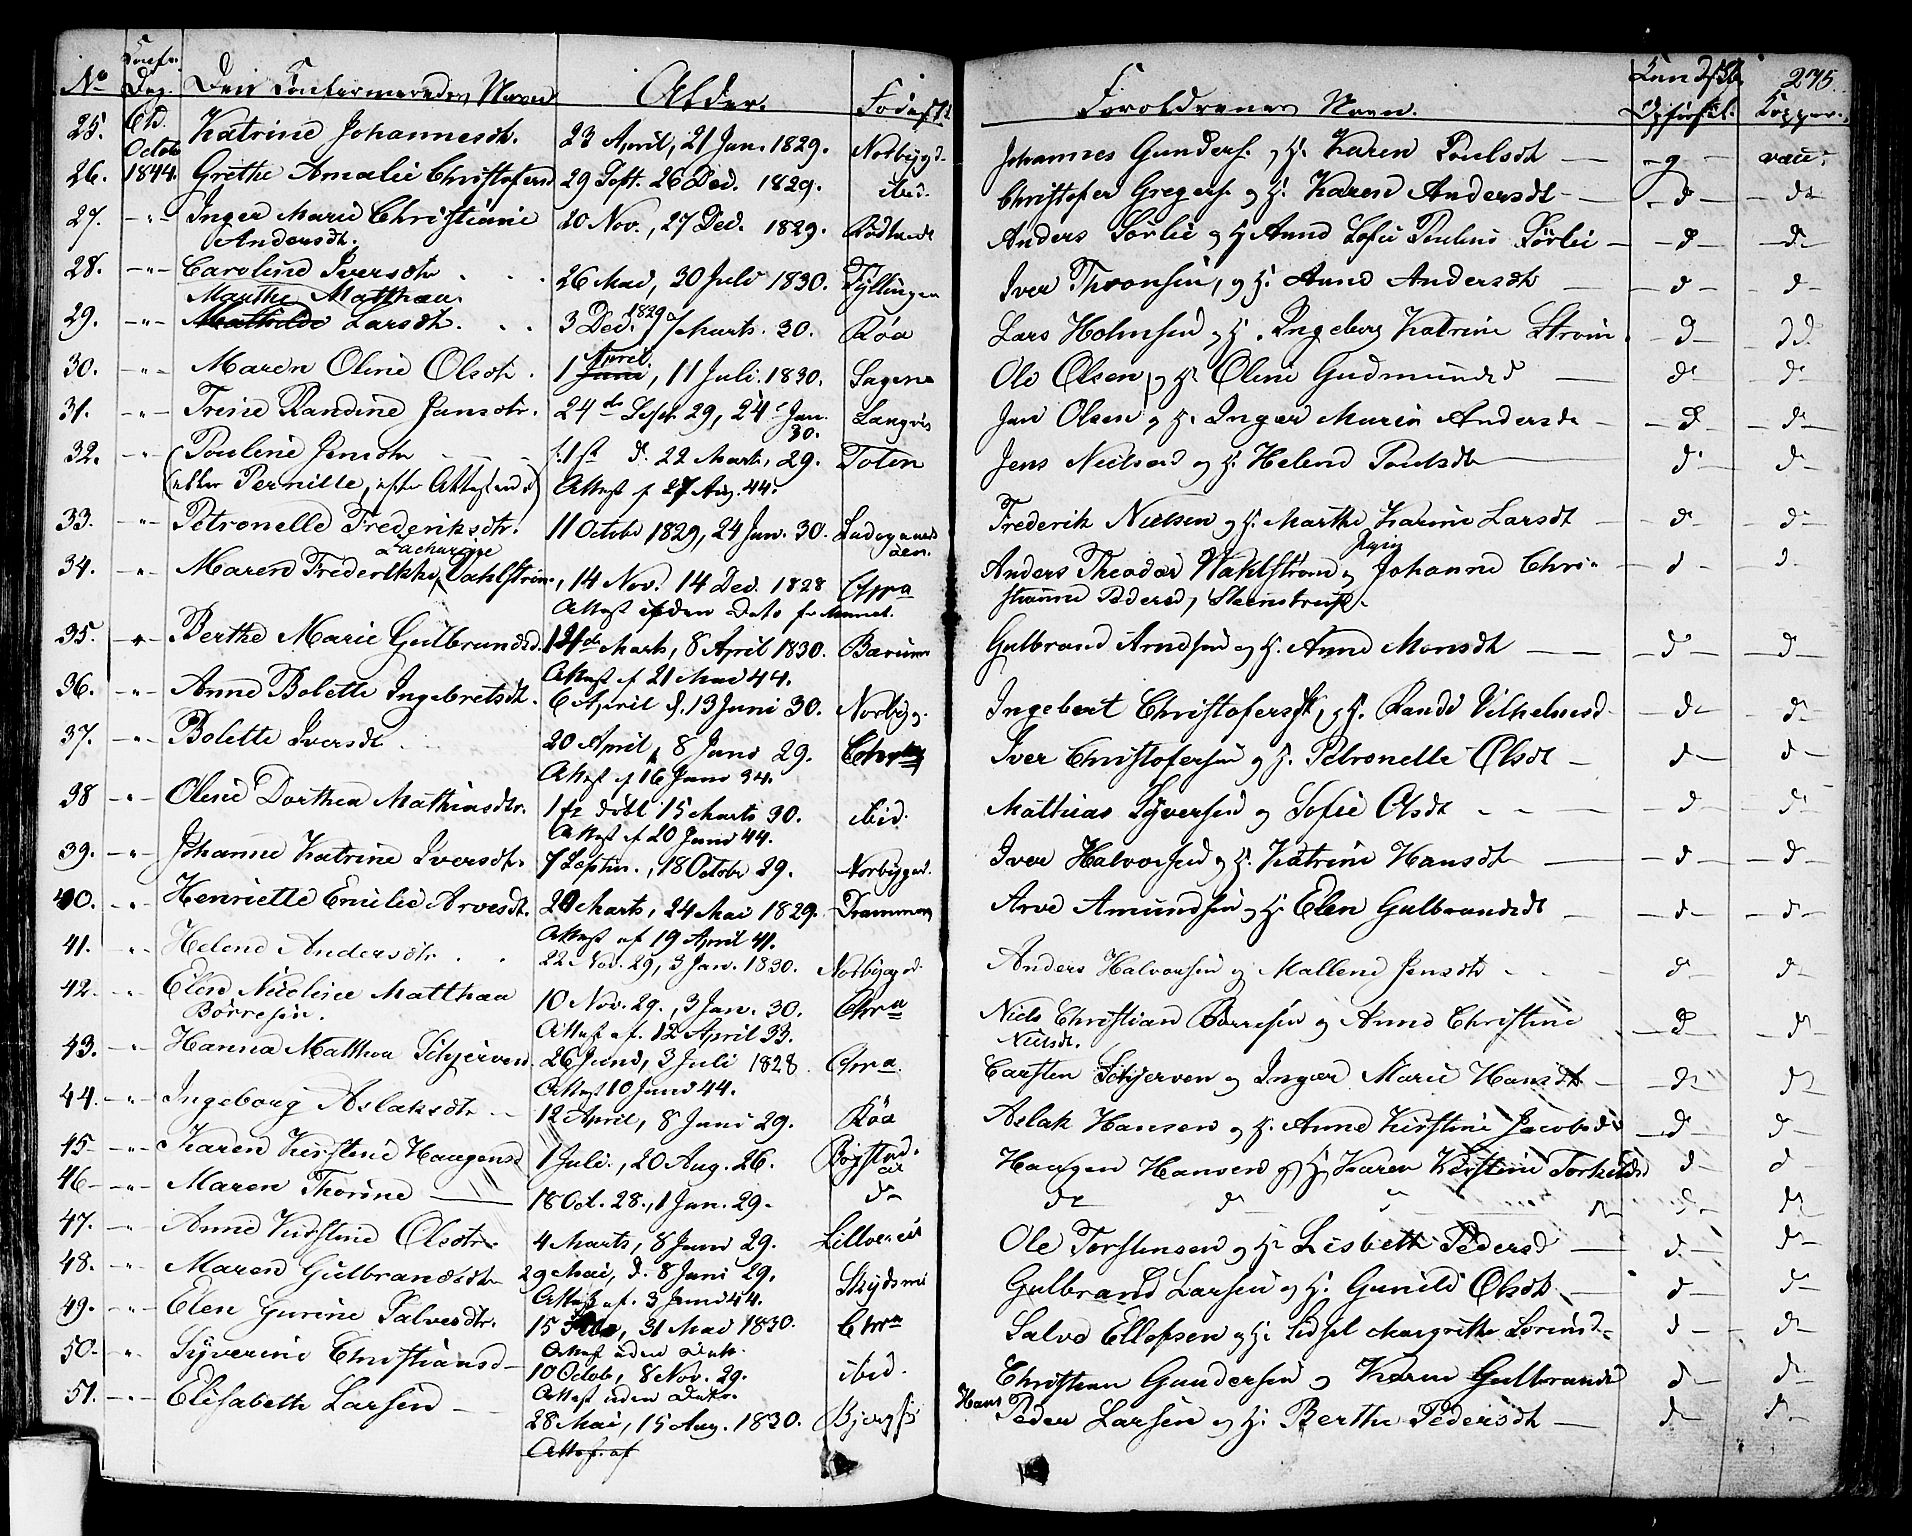 No Conf. Dag. Den Confirmeredes Navn Alder. Fødest. Foreldrenes Navn. Kundsk. Opførsel. Kopper. 275.
25. 6te Octob Katrine Johannesdt. 23 April, 21 Jun. 1829. Norbygd. Johannes Gunders. og H. Karen Poulsdt — g — vac.
26. 1844. Grethe Amalie Christofersd 29 Sept. 26 Dec. 1829. ibid. Christofer Gregers. og H. Karen Andersdt — d — d
27. — " — Inger Marie Christiane 20 Nov., 27 Dec. 1829. Anders Sørlie og H Anne Sofie Pouline Sørlie — d — d —
Andersdt.
28. — " — Caroline Iversdtr 26 Mai, 30 Juli 1830. Fyllingen Iver Thronsen, og H. Anne Andersdt — d — d
Marthe Matthea
29. — " — Mathilde Larsdtr. 3 Dec. 1829, 7 Marts. 30. Røa Lars Holmsen og H. Ingeborg Katrine Strøm. — d — dd.
30. — " — Maren Oline Olsdtr. 1 Juni April, 11 Juli. 1830. Sagene Ole Olsen og H. Oline Gudmundsd — d — d
31. — " — Trine Randine Jansdtr. 24de Septr. 29, 24 Jan. 30. Langvis Jan Olsen og H. Inger Marie Andersdt — d — d —
32. — " — Pouline Jensdtr f. 1st d. 22 Marts, 29. Toten Jens Nielsen og H. Helene Poulsdt — d — d
(eller Pernille, efter Attesten) Attest f 27 Aug. 44.
33. — " — Petronelle Frederiksdtr. 11 Octobr 1829, 24 Jan. 30. Ladegaardsøen. Frederik Nielsen og H. Marthe Karine Larsdt — d — d
Zacharine
34. — " — Maren Frederikke Vahlstrøm, 14 Nov. 14 Dec. 1828 Chra Anders Theodor Wahlstrøm og Johanne Chri-
Attest uden Dato stianne Peders, Steenstrup.
35. — " — Berthe Marie Gulbrandsd. 14de Marts, 8 April 1830. Bærum Gulbrand Arnesen og H. Anne Monsdt — d — d —
Attest f 21 Mai 44.
36. — " — Anne Bolette Ingebretsdt. 6 April d. 13 Juni 30. Norbyg. Ingebert Christofers og H. Randi Vilhelmsd — d — d —
37. — " — Bolette Iversdt 20 April, 8 Juni 29. Chra Iver Christofersen og H. Petronelle Olsdt — d — d —
Attest f 16 Juni 34.
38 — " — Oline Dorthea Mathiasdtr. 1 fr døbt 15 Marts 30. ibid. Mathias Syversen og Sofie Olsdt — d — d
Attest f 20 Juni 44.
39. — " — Johanne Katrine Iversdtr. 7 Septbr., 18 Octobr 29. Norbygd. Iver Halvorsen og H. Katrine Hansdt — d — d —
40. — " — Henriette Emilie Arvesdt. 20 Marts, 24 Mai 1829. Drammen Arve Amundsen og H. Elen Gulbrandsdt — d — d —
Attest af 19 April 41.
41. — " — Helene Andersdtr. 22 Nov. 29, 3 Jan. 1830. Norbygd. Anders Halvorsen og Mallene Jensdtr — d — d —
42. — " — Elen Nicoline Matthea 10 Nov. 29., 3 Jan. 30. Chra Niels Christian Børresen og Anne Christine — d — d
Børresen. Attest af. 12 April 33. Nielsdt.
43. — " — Hanna Mathea Schjerven 26 Juni, 3 Juli 1828 Chra. Carsten Schjerven og Inger Marie Hansdt — d — d
Attest 10 Juni 44.
44. — " — Ingeborg Aslaksdtr — 12 April, 8 Juni 29. Røa Aslak Hansen og H. Anne Kirstine Jacobsdt — d — d —
45 — " — Karen Kirstine Haagensd 1 Juli., 20 Aug. 26. Bogstad. Haagen Hansen og H Karen Kirstine Torkildsd — d — d
46 — " — Maren Thorine — 18 Oct. 28., 1 Jan. 29. d — d d d — d — d
47. — " — Anne Kirstine Olsdtr. 4 Marts, 8 Juni 29. Ole Torstensen og H. Lisbeth Pedersd — d — d —
48. — " — Maren Gulbrandsdtr 29 Mai, d. 8 Juni 29. Gulbrand Larsen og H. Gunild Olsdt. — d — d —
Attest af. 3 Juni 44.
49. — " — Elen Gurine Salvesdtr. 15, 31 Mai 1830. Chra Salve Ellefsen og H. Sidsel Margrethe — d — d
Attest uden Dato.
50. — " — Syverine Christiansd — 10 Octob, 8 Nov. 29. ibid. Christian Gundersen og Karen Gulbrandsd — d — d —
Attest uden Dato.
51. — " — Elisabeth Larsen — 28 Mai, 15 Aug. 1830. Hans Peder Larsen og H. Berthe Pedersdt — d — d —
Attest. af